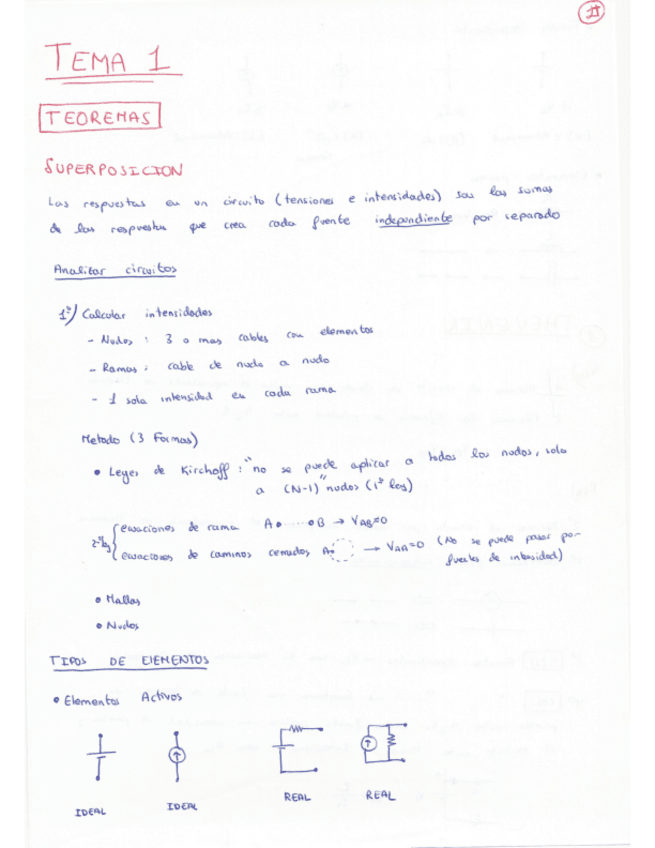 II
TEMA 1
TEOREMAS
SUPERPOSICION
Las respuestas en un circuito (tensiones e intensidades) son las sumas
de las respuestas que crea cada fuente independiente por separado
Analizar circuitos
1º) Calcular intensidades
- Nudos : 3 o mas cables con elementos
- Ramas : cable de nudo a nudo
- 1 sola intensidad en cada rama
Metodo (3 Formas)
• Leyes de Kirchoff : "no se puede aplicar a todos los nudos, solo
a (N-1)" nudos (1ª ley)
2ª ley { ecuaciones de rama A•·····•B → VAB=0
ecuaciones de caminos cerrados A → VAA=0 (No se puede pasar por
fuentes de intensidad)
• Mallas
• Nudos
TIPOS DE ELEMENTOS
• Elementos Activos
IDEAL IDEAL REAL REAL